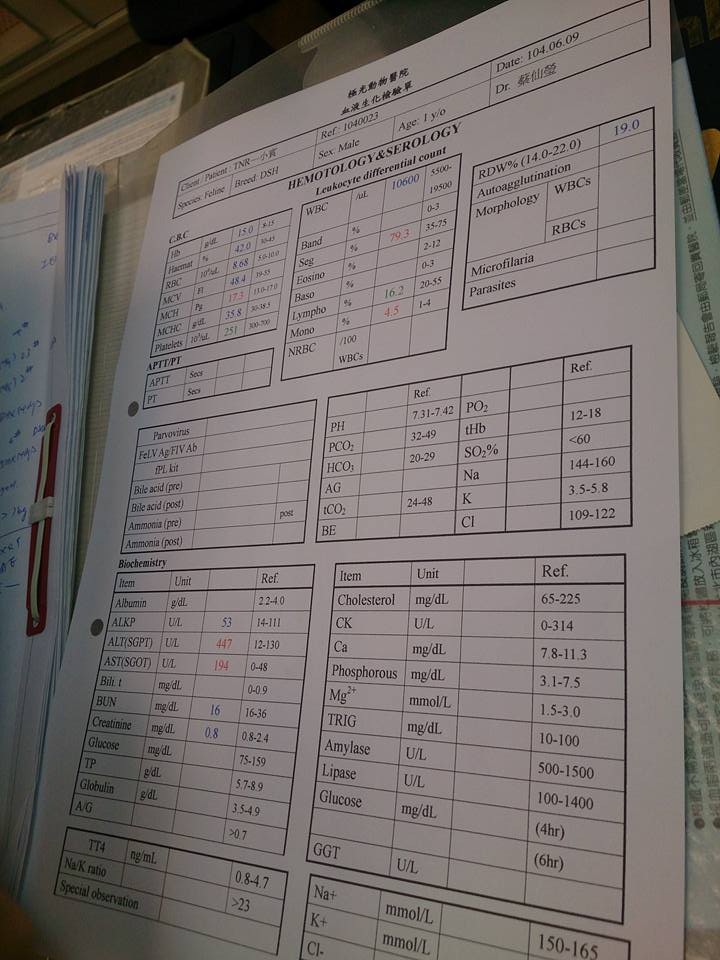 極光動物醫院
血液生化檢驗單
Date: 104.06.09
Ref.: 1040023
Dr. 蔡仙瑩
Client / Patient : TNR—小賓
Sex: Male
Age: 1 y/o
Species: Feline
Breed: DSH
HEMOTOLOGY&SEROLOGY
Leukocyte differential count
C.B.C
Hb g/dL 15.0 8-15
Haemat % 42.0 30-45
RBC 10⁶/uL 8.68 5.0-10.0
MCV Fl 48.4 39-55
MCH Pg 17.3 13.0-17.0
MCHC g/dL 35.8 30-38.5
Platelets 10³/uL 251 300-700
WBC /uL 10600 5500-19500
Band % 0-3
Seg % 79.3 35-75
Eosino % 2-12
Baso % 0-3
Lympho % 16.2 20-55
Mono % 4.5 1-4
NRBC /100 WBCs
RDW% (14.0-22.0) 19.0
Autoagglutination
Morphology WBCs
RBCs
Microfilaria
Parasites
APTT/PT
APTT Secs
PT Secs
Parvovirus
FeLV Ag/FIV Ab
fPL kit
Bile acid (pre)
Bile acid (post)
Ammonia (pre) post
Ammonia (post)
Ref. Ref.
PH 7.31-7.42 PO₂
PCO₂ 32-49 tHb 12-18
HCO₃ 20-29 SO₂% <60
AG Na 144-160
tCO₂ 24-48 K 3.5-5.8
BE Cl 109-122
Biochemistry
Item Unit Ref.
Albumin g/dL 2.2-4.0
ALKP U/L 53 14-111
ALT(SGPT) U/L 447 12-130
AST(SGOT) U/L 194 0-48
Bili. t mg/dL 0-0.9
BUN mg/dL 16 16-36
Creatinine mg/dL 0.8 0.8-2.4
Glucose mg/dL 75-159
TP g/dL 5.7-8.9
Globulin g/dL 3.5-4.9
A/G >0.7
Item Unit Ref.
Cholesterol mg/dL 65-225
CK U/L 0-314
Ca mg/dL 7.8-11.3
Phosphorous mg/dL 3.1-7.5
Mg²⁺ mmol/L 1.5-3.0
TRIG mg/dL 10-100
Amylase U/L 500-1500
Lipase U/L 100-1400
Glucose mg/dL (4hr)
(6hr)
GGT U/L
TT4 ng/mL 0.8-4.7
Na/K ratio >23
Special observation
Na+ mmol/L 150-165
K+ mmol/L
Cl-